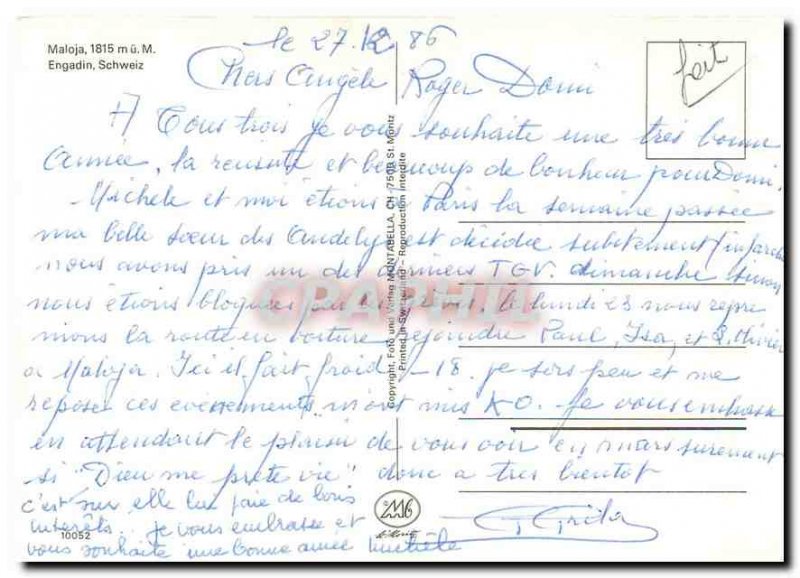 Maloja, 1815 m ü. M.
Engadin, Schweiz
le 27.12 86
fait
Chers Angèle Roger Domi
A Tous trois je vous souhaite une très bonne
Année, la reussite et beaucoup de bonheur pour Domi.
Michele et moi étions à Paris la semaine passée
ma belle soeur des Andelys est décédée subitement (infarctus
nous avons pris un des derniers T G V. dimanche sinon
nous étions bloquées par les le lundi 23 nous repre
nions la route en voiture rejoindre Paul, Isa, et Olivier
a Maloja. Ici il fait froid -18. je sors peu et me
repose ces evènements m'ont mis K O. Je vous embrasse
en attendant le plaisir de vous voir en mars surement
si "Dieu me prete vie" donc a tres bientot
c'est sur elle lui paie de bons
interêts. je vous embrasse et
vous souhaite une bonne année Michèle
10052
Copyright, Foto und Verlag MONTABELLA, CH-7500 St. Moritz
Printed in Switzerland - Reproduction interdite
CPAPHIL